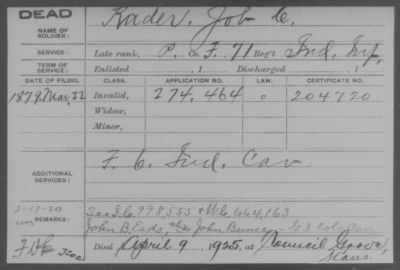 DEAD
NAME OF SOLDIER: Rader, Job C.
SERVICE: Late rank, P. Co. F. 71 Reg't Ind. Inf.
TERM OF SERVICE: Enlisted , 1 Discharged , 1
DATE OF FILING. CLASS. APPLICATION NO. LAW. CERTIFICATE NO.
1879. Mar, 22 Invalid, 274,464 204720
Widow,
Minor,
ADDITIONAL SERVICES: F. 6. Ind. Cav.
3-17-20
REMARKS: 798,555 664,163
John B. Eads, John G 3 Colo
Died April 9, 1925, at Council Grove, Kans.